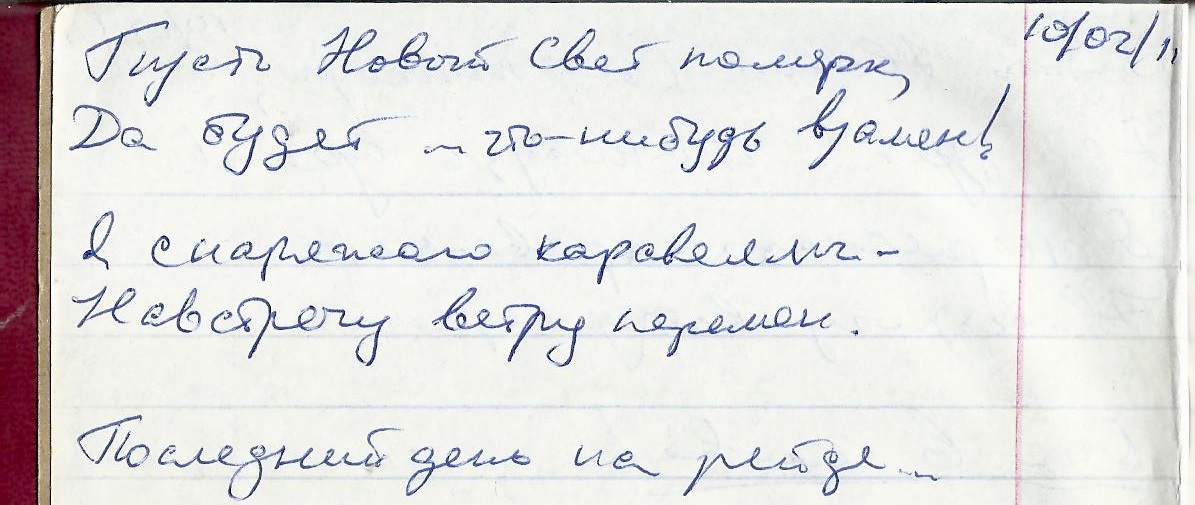 10/02/11
Пусть Новый Свет померк,
Да будет ... что-нибудь взамен!
Я снаряжаю каравеллы -
Навстречу ветру перемен.
Последний день на рейде...